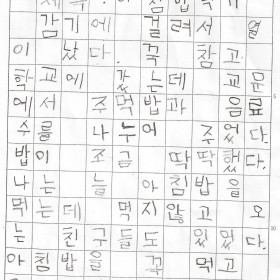 감기에 걸려서 열
이 났다. 꾹 참고
학교에 갔는데 교문
에서 주먹밥과 음료
수를 나누어 주었다.
밥이 조금 딱딱했다.
나는 늘 아침밥을
먹는데 먹지 않고 오
는 친구들도 있었다.
아침밥을 꼭 먹고